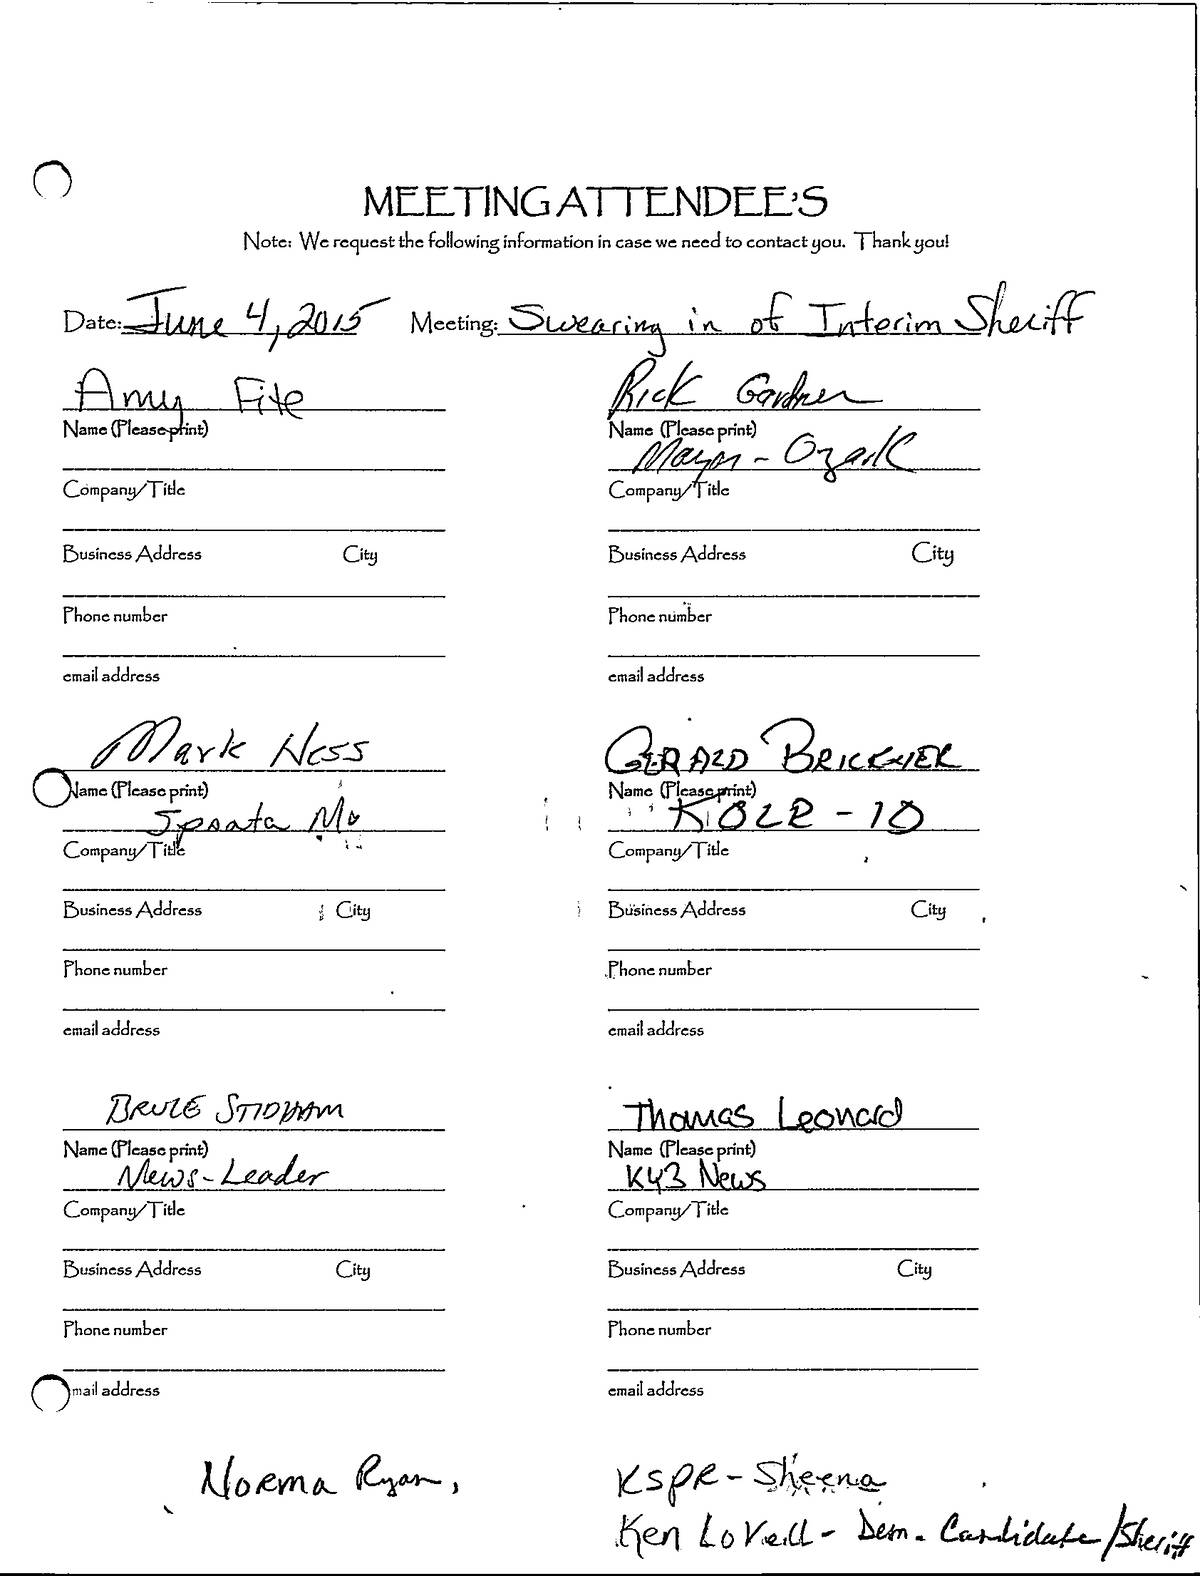 MEETING ATTENDEE'S
Note: We request the following information in case we need to contact you. Thank you!
Date: June 4, 2015 Meeting: Swearing in of Interim Sheriff
Amy Fite
Name (Please print)
Company/Title
Business Address City
Phone number
email address
Rick Gardner
Name (Please print)
Mayor - Ozark
Company/Title
Business Address City
Phone number
email address
Mark Hess
Name (Please print)
Mo
Company/Title
Business Address City
Phone number
email address
GERALD
Name (Please print)
KOLR - 10
Company/Title
Business Address City
Phone number
email address
BRUCE STIDHAM
Name (Please print)
News-Leader
Company/Title
Business Address City
Phone number
email address
Thomas Leonard
Name (Please print)
KY3 News
Company/Title
Business Address City
Phone number
email address
Norma Ryan,
KSPR - Sheena
Ken LoVell - Dem. Candidate/Sheriff